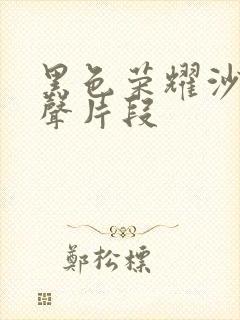 黑色荣耀沙
聲片段
鄭松標